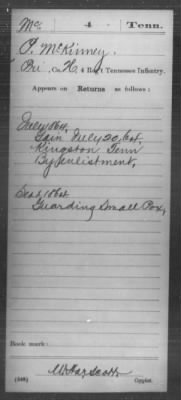 Mc | 4 | Tenn.
P. McKinney.
Pri, Co. H, 4 Reg't Tennessee Infantry.
Appears on Returns as follows:
July 1864,
Gain July 20, 64.
Kingston Tenn
By enlistment,
Sept 1864
Guarding Small Pox,
Book mark:
(546)
Copyist.